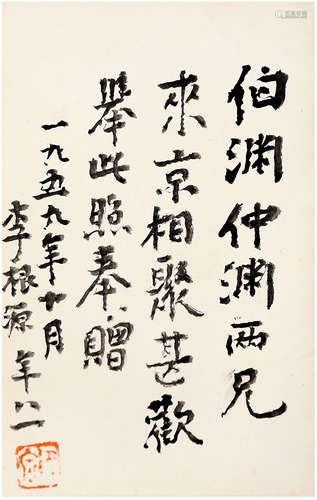 伯渊仲渊两兄
來京相聚甚歡
舉此照奉贈
一九五九年十月
李根源 年八一